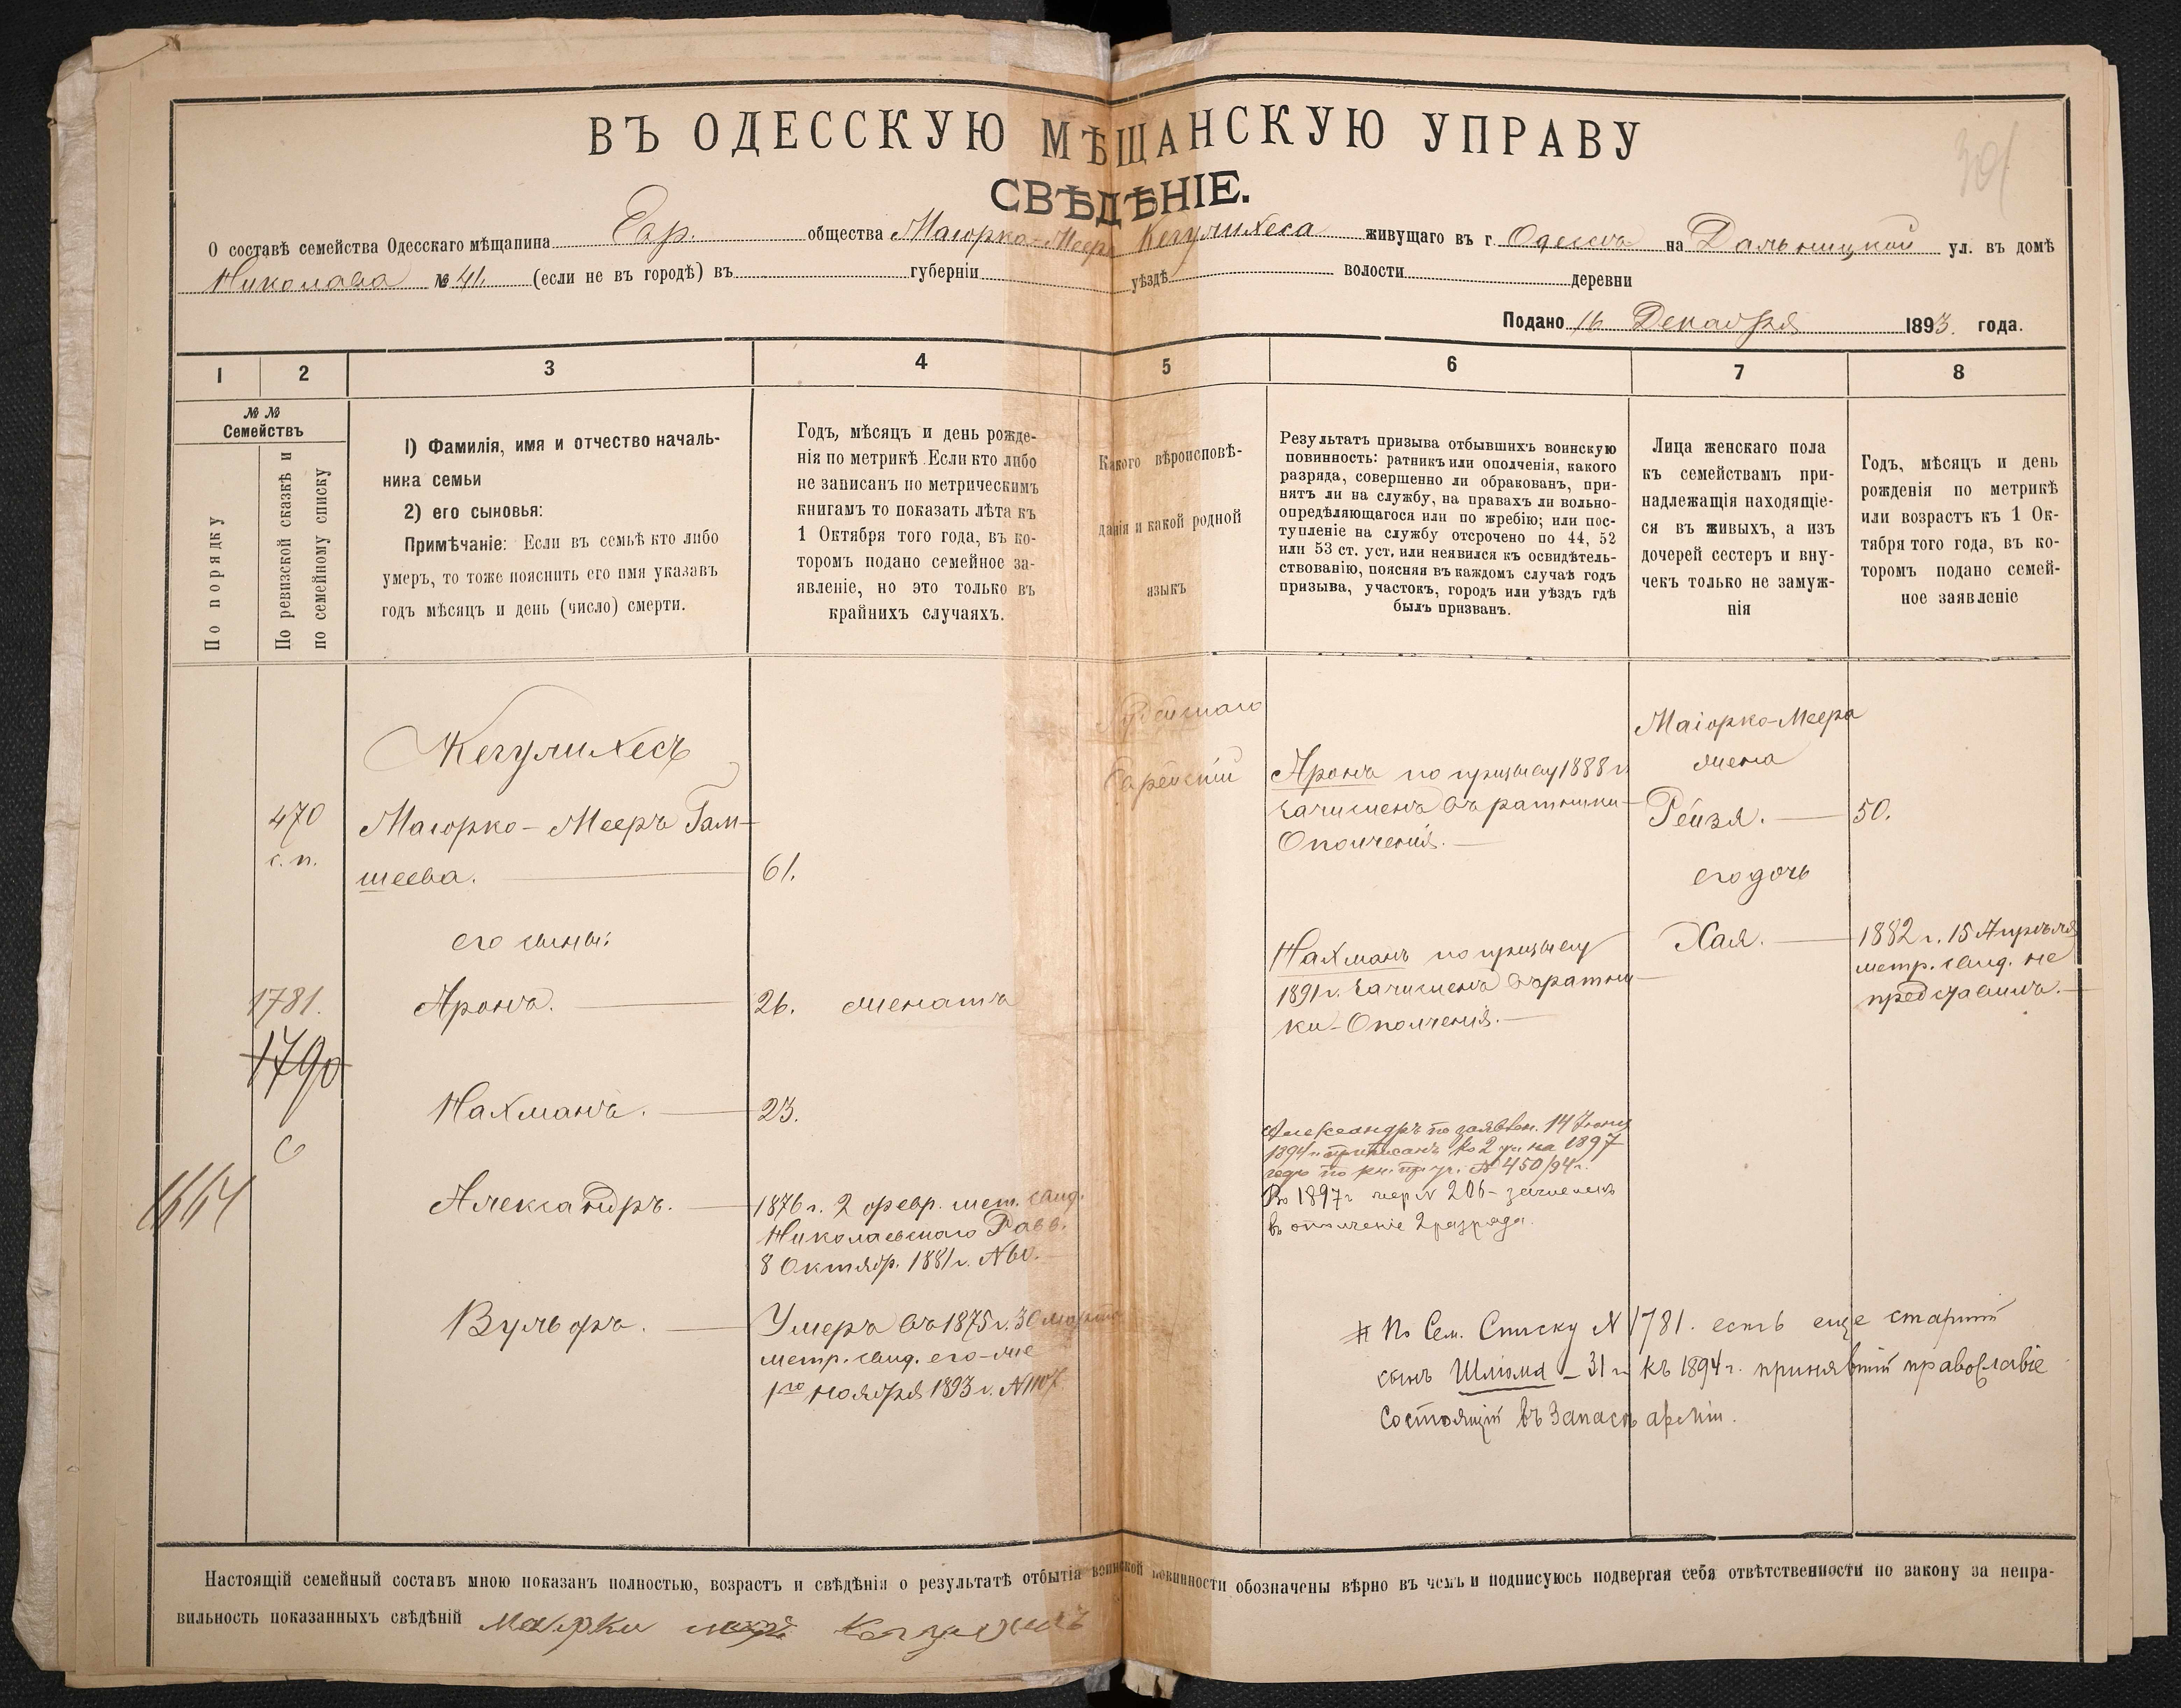 301
ВЪ ОДЕССКУЮ МѢЩАНСКУЮ УПРАВУ
СВѢДѢНІЕ.
О составѣ семейства Одесскаго мѣщанина Евр. общества Маіорко-Меера Кегулихеса живущаго въ г. Одессѣ на Дальницкой ул. въ домѣ
Николаева № 41. (если не въ городѣ) въ губерніи уѣздѣ волости деревни
Подано 16 Декабря 1893. года.
1
2
3
4
5
6
7
8
№ №
Семействъ
По порядку
По ревизской сказкѣ и
по семейному списку
1) Фамилія, имя и отчество началь-
ника семьи
2) его сыновья:
Примѣчаніе: Если въ семьѣ кто либо
умеръ, то тоже пояснить его имя указавъ
годъ мѣсяцъ и день (число) смерти.
Годъ, мѣсяцъ и день рожде-
нія по метрикѣ. Если кто либо
не записанъ по метрическимъ
книгамъ то показать лѣта къ
1 Октября того года, въ ко-
торомъ подано семейное за-
явленіе, но это только въ
крайнихъ случаяхъ.
Какого вѣроисповѣ-
данія и какой родной
языкъ
Результатъ призыва отбывшихъ воинскую
повинность: ратникъ или ополченія, какого
разряда, совершенно ли обракованъ, при-
нятъ ли на службу, на правахъ ли вольно-
опредѣляющагося или по жребію; или пос-
тупленіе на службу отсрочено по 44, 52
или 53 ст. уст. или неявился къ освидѣтель-
ствованію, поясняя въ каждомъ случаѣ годъ
призыва, участокъ, городъ или уѣздъ гдѣ
былъ призванъ.
Лица женскаго пола
къ семействамъ при-
надлежащія находящіе-
ся въ живыхъ, а изъ
дочерей сестеръ и вну-
чекъ только не замуж-
нія
Годъ, мѣсяцъ и день
рожденія по метрикѣ
или возрастъ къ 1 Ок-
тября того года, въ ко-
торомъ подано семей-
ное заявленіе
470
с. п.
1781.
1790
С
1664
Кегулихесъ
Маіорко-Мееръ Гам-
шеева.
61.
его сыны:
Аронъ.
26. женатъ
Нахманъ.
23.
Александръ.
1876 г. 2 февр. мет. свид.
Николаевскаго Равв.
8 Октябр. 1881 г. № 60.
Вульфъ.
Умеръ въ 1875 г. 30 марта
метр. свид. его-же
1го ноября 1893 г. № 1107.
Іудейскаго
Еврейскій
Аронъ по призыву 1888 г.
зачисленъ въ ратники
Ополченія.
Нахманъ по призыву
1891 г. зачисленъ въ ратни-
ки Ополченія.
Александръ по заявлен. 14 Іюня
1894 г. приписанъ ко 2 уч. на 1897
годъ по кн. пр. уч. № 450/94 г.
Въ 1897 г. жер № 206 - зачисленъ
въ ополченіе 2 разряда.
Маіорко-Меера
жена
Рейзя.
50.
его дочь
Хая.
1882 г. 15 Апрѣля
метр. свид. не
представилъ.
# По Сем. Списку № 1781. есть еще старшій
сынъ Шлиома - 31 г. къ 1894 г. принявшій православіе
состоящій въ запасѣ арміи.
Настоящій семейный составъ мною показанъ полностью, возрастъ и свѣдѣнія о результатѣ отбытія воинской повинности обозначены вѣрно въ чемъ и подписуюсь подвергая себя отвѣтственности по закону за непра-
вильность показанныхъ свѣдѣній